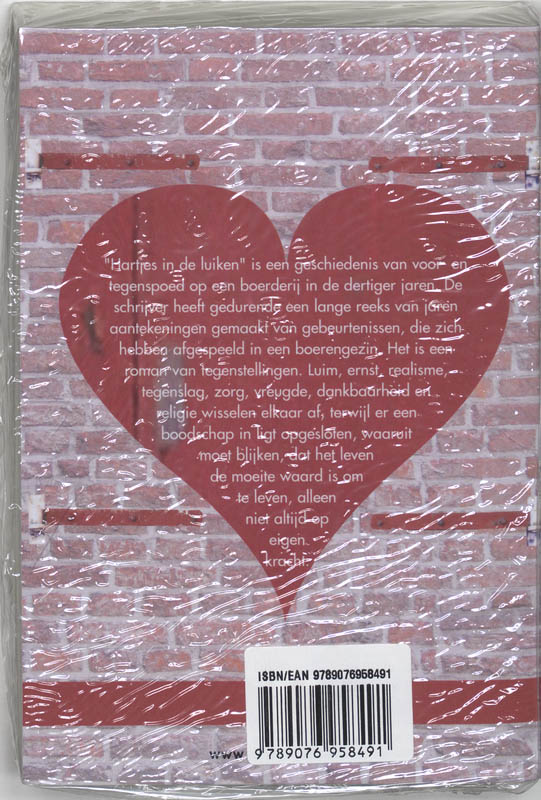 "Hartjes in de luiken" is een geschiedenis van voor- en
tegenspoed op een boerderij in de dertiger jaren. De
schrijver heeft gedurende een lange reeks van jaren
aantekeningen gemaakt van gebeurtenissen, die zich
hebben afgespeeld in een boerengezin. Het is een
roman van tegenstellingen. Luim, ernst, realisme,
tegenslag, zorg, vreugde, dankbaarheid en
religie wisselen elkaar af, terwijl er een
boodschap in ligt opgesloten, waaruit
moet blijken, dat het leven
de moeite waard is om
te leven, alleen
niet altijd op
eigen
kracht.
ISBN/EAN 9789076958491
www.
9 789076 958491